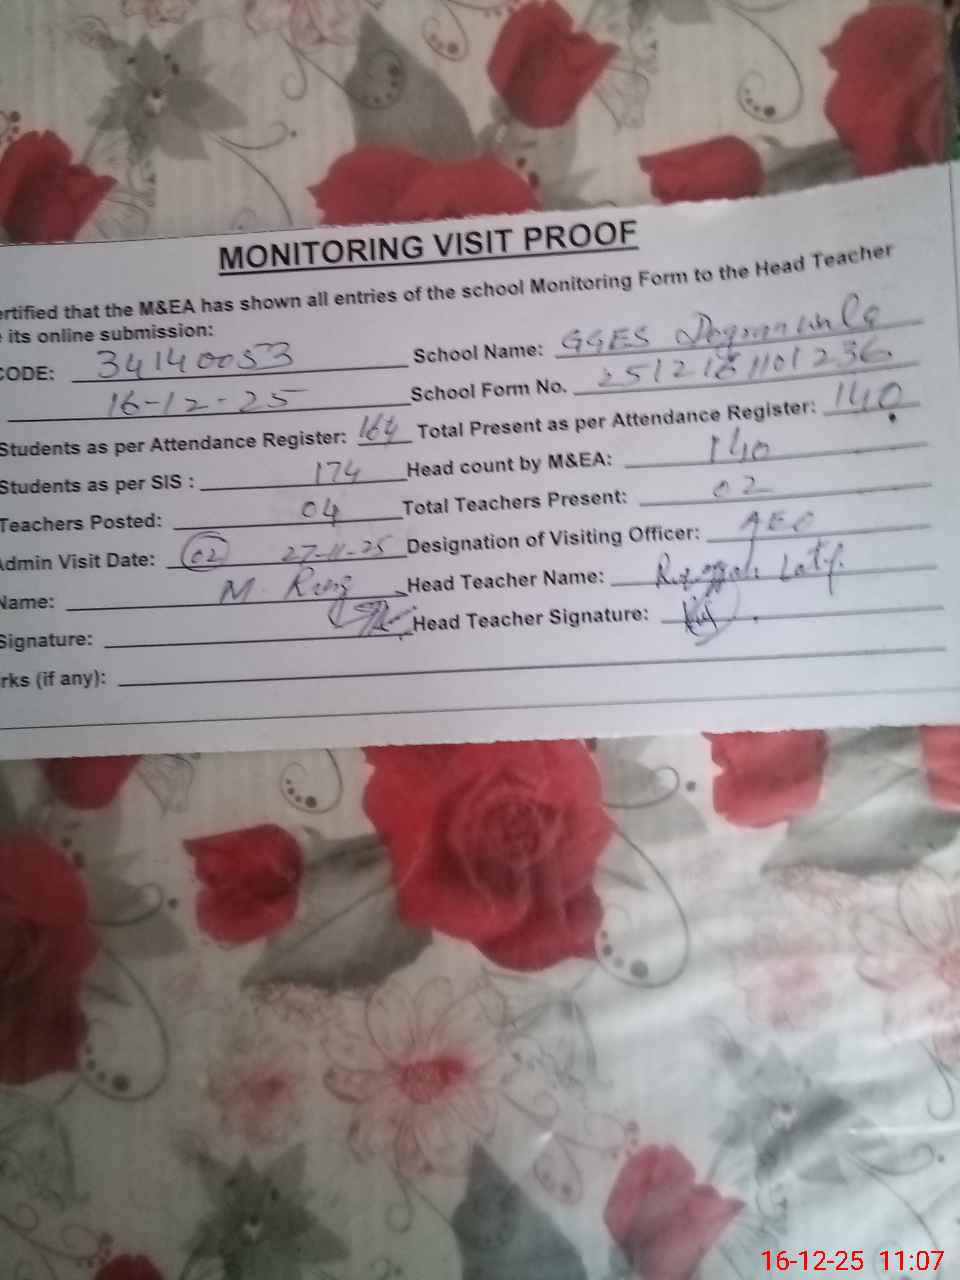 MONITORING VISIT PROOF
ertified that the M&EA has shown all entries of the school Monitoring Form to the Head Teacher
its online submission:
CODE: 34140053 School Name: GGES
16-12-25 School Form No. 2512181101236
Students as per Attendance Register: 164 Total Present as per Attendance Register: 140
Students as per SIS : 174 Head count by M&EA: 140
Teachers Posted: 04 Total Teachers Present: 02
Admin Visit Date: 02 27-11-25 Designation of Visiting Officer: AEO
Name: M. Head Teacher Name: Latif
Signature: Head Teacher Signature:
rks (if any):
16-12-25 11:07